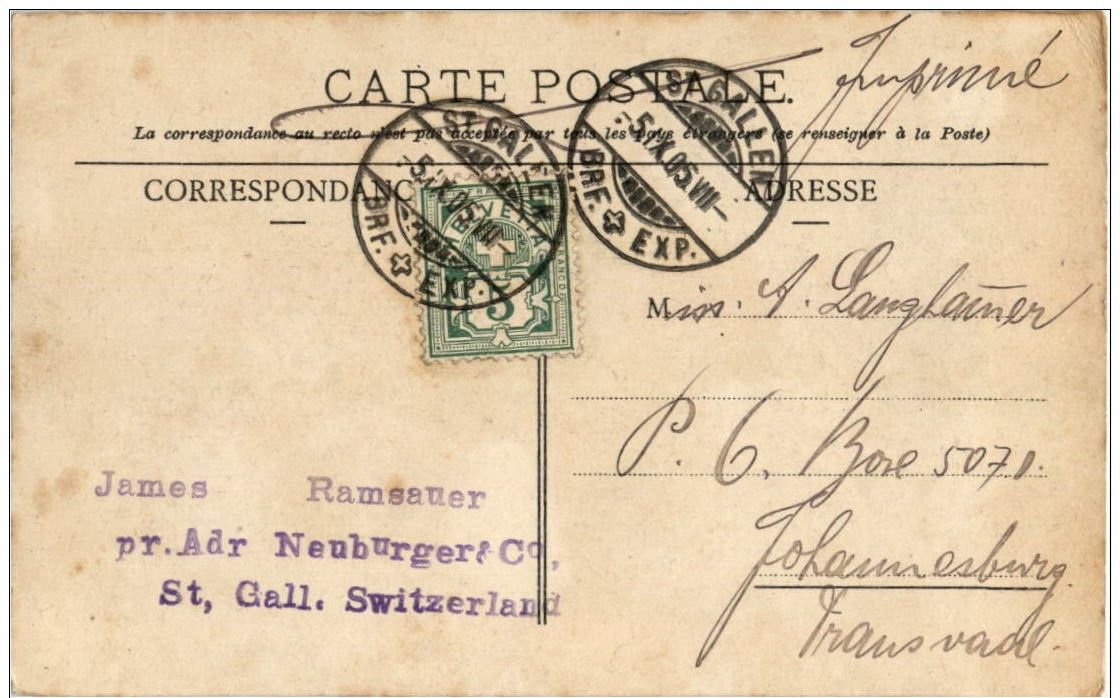 Imprimé
CARTE POSTALE.
La correspondance au recto n'est pas acceptée par tous les pays étrangers (se renseigner à la Poste)
CORRESPONDANC
ADRESSE
ST. GALLEN
-5.IX.05.VIII-
BRF. EXP.
ST. GALLEN
-5.IX.05.VIII-
BRF. EXP.
FRANCO
HELVETIA
FRANCO
5
Miss. A. Langhainer
P. O. Box 5071.
Johannesburg.
Transvaal.
James Ramsauer
pr. Adr Neuburger & Co,
St, Gall. Switzerland